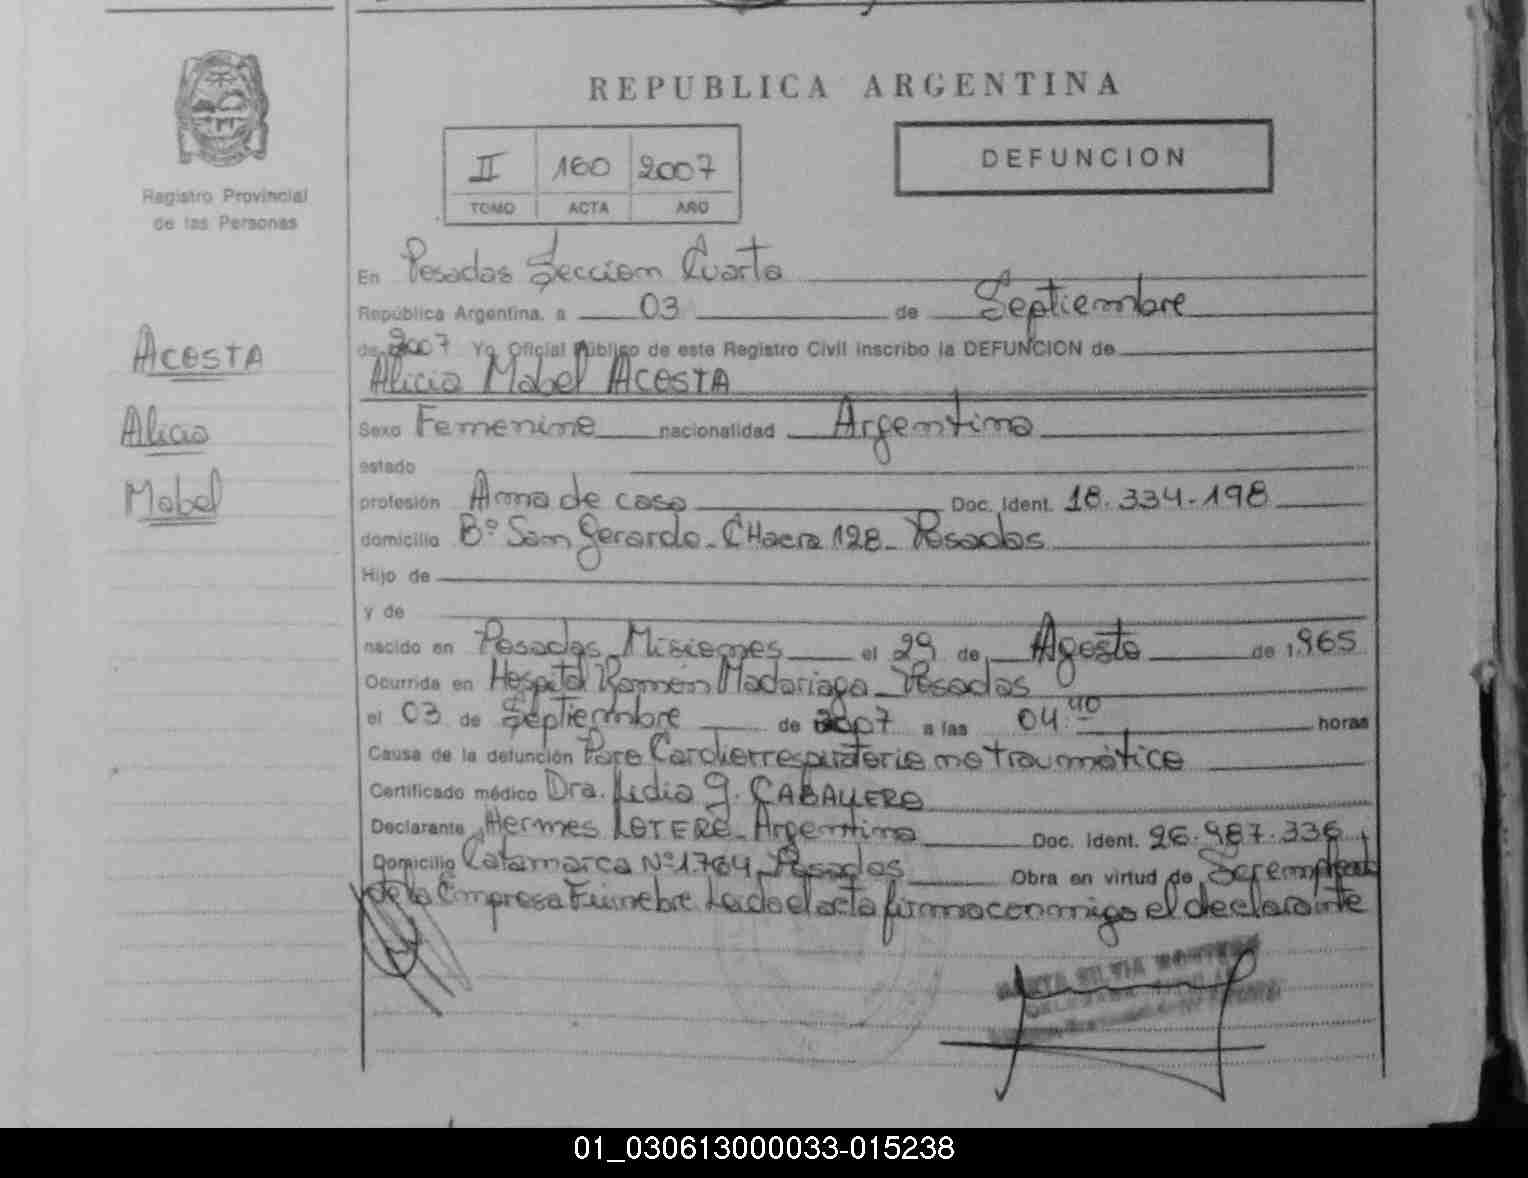 REPUBLICA ARGENTINA
II 160 2007
TOMO ACTA AÑO
DEFUNCION
Registro Provincial
de las Personas
ACOSTA
Alicia
Mabel
En Posadas Sección Cuarta
República Argentina, a 03 de Septiembre
de 2007 Yo Oficial Público de este Registro Civil inscribo la DEFUNCION de
Alicia Mabel ACOSTA
Sexo Femenino nacionalidad Argentina
estado
profesión Ama de casa Doc. Ident. 18.334.198
domicilio Bº San Gerardo - CHacra 128 - Posadas
Hijo de
y de
nacido en Posadas Misiones el 29 de Agosto de 1.965
Ocurrida en Hospital Ramón Madariaga - Posadas
el 03 de Septiembre de 2007 a las 04:40 horas
Causa de la defunción Paro Cardiorrespiratorio no traumático
Certificado médico Dra. Lidia G. CABALLERO
Declarante Hermes LOTERO - Argentino Doc. Ident. 26.987.336
Domicilio Catamarca Nº 1.764 - Posadas Obra en virtud de Ser empleado
de la Empresa Fúnebre. Leida el acta firma conmigo el declarante
SILVIA
01_030613000033-015238